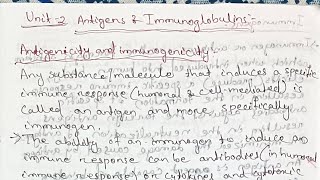 Unit-2 Antigens & Immunoglobulins
Antigenicity and immunogenicity
Any substance/molecule that induces a specific
immune response (humoral & cell-mediated) is
called an antigen and more specifically
immunogen.
→ The ability of an immunogen to induce an
immune response can be antibodies in humoral
immune response) or cytokines and cytotoxic